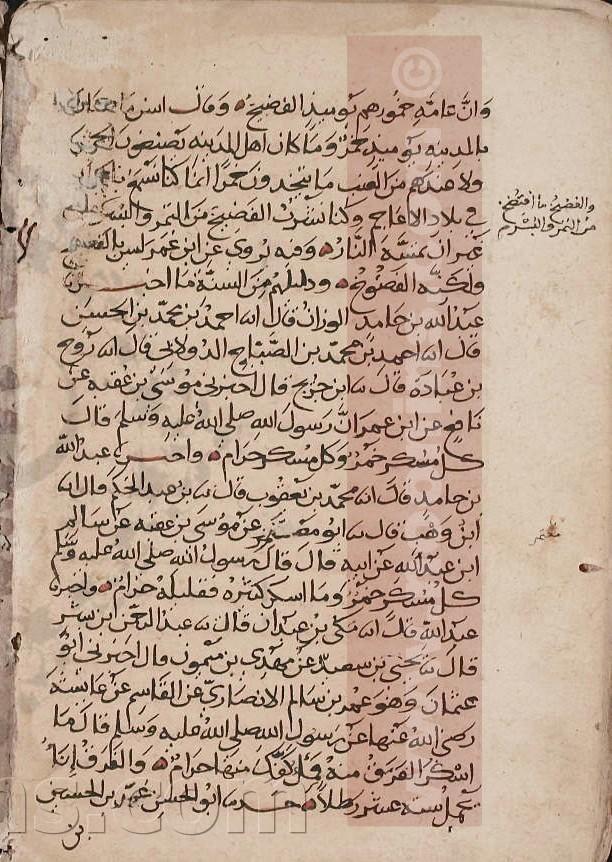 وان عامه خمورهم يوميذ الفضيخ وقال انس
بالمدينه يوميذ خمر وما كان اهل المدينه يصنعون
ولا عندهم من العنب ما يتخذون خمرا انما كنا نسمع
في بلاد الاعاجم وكنا نشرب الفضيخ من التمر والبسر
غير ان تمسه النار وفيه يروى عن ابن عمر ليس بالفضيخ
ولكنه الفضوخ ودليلهم من السنة ما
عبد الله بن حامد الوزان قال انه احمد بن محمد بن الحسن
قال انه احمد بن محمد بن الصباح الدولابي قال انه روح
بن عباده قال نه ابن جريج قال اخبرني موسى بن عقبه عن
نافع عن ابن عمر ان رسول الله صلى الله عليه وسلم قال
كل مسكر خمر وكل مسكر حرام عبد الله
بن حامد قال انه محمد بن يعقوب قال نه بن عبد الحكم قال انه
ابن وهب قال نه ابو معشر عن موسى بن عقبه عن سالم
ابن عبد الله عن ابيه قال قال رسول الله صلى الله عليه وسلم
كل مسكر خمر وما اسكر كثيره فقليله حرام
عبد الله قال انه مكي بن عبدان قال نه عبد الرحمن ابن بشر
قال نه يحيى بن سعيد عن مهدي بن ميمون قال اخبرني ابو
عثمان وهو عمر بن سالم الانصاري عن القاسم عن عائشة
رضي الله عنها عن رسول الله صلى الله عليه وسلم قال ما
اسكر الفرق منه فمل كفك منها حرام والفرق انا
يحمل سته عشر رطلا ابو الحسن محمد بن الحسين
بن
والفضيخ ما افتضخ
من التمر والبسر
معشر